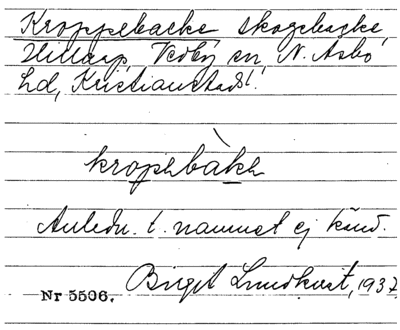 Kroppebacke skogsbacke,
Hillarp, Vedby sn, N. Åsbo
hd, Kristianstads l.
kropebàke
Anledn. t. namnet ej känd.
Birgit Lundkvist, 1937
Nr 5506.